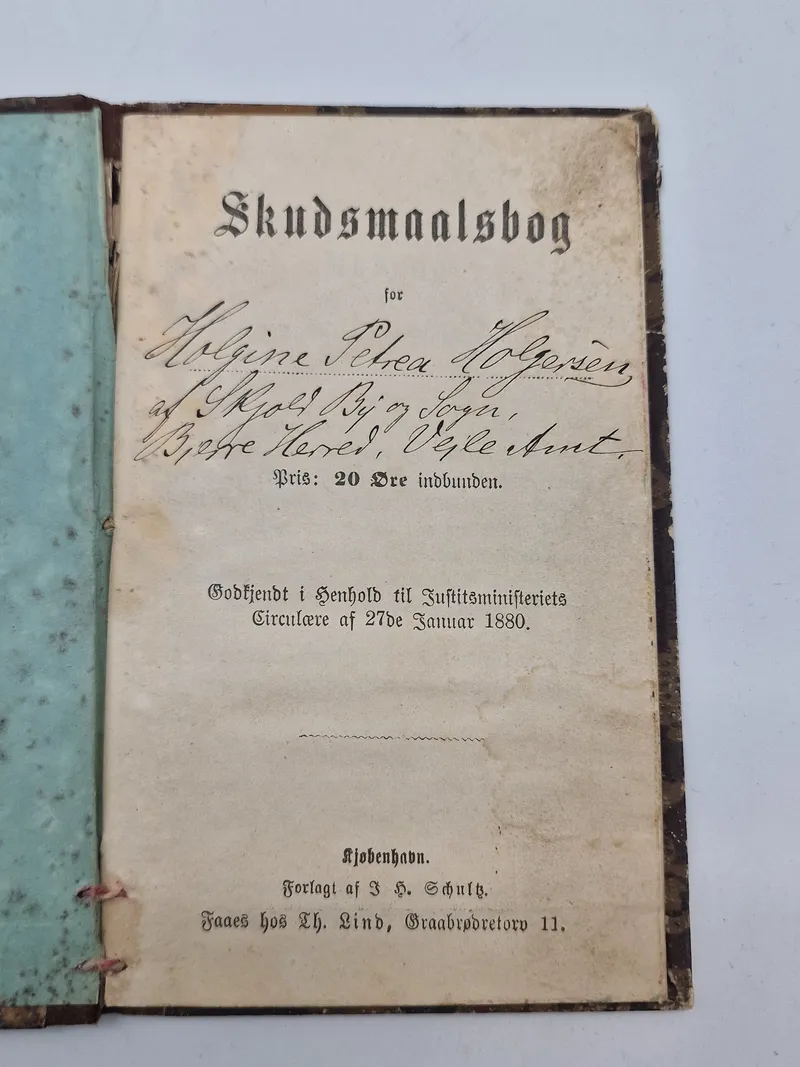 Skudsmaalsbog
for
Holgine Petrea Holgersen
af Skjold By og Sogn,
Bjerre Herred, Vejle Amt.
Pris: 20 Øre indbunden.
Godkjendt i Henhold til Justitsministeriets
Circulære af 27de Januar 1880.
Kjøbenhavn.
Forlagt af J H. Schultz.
Faaes hos Th. Lind, Graabrødretorv 11.